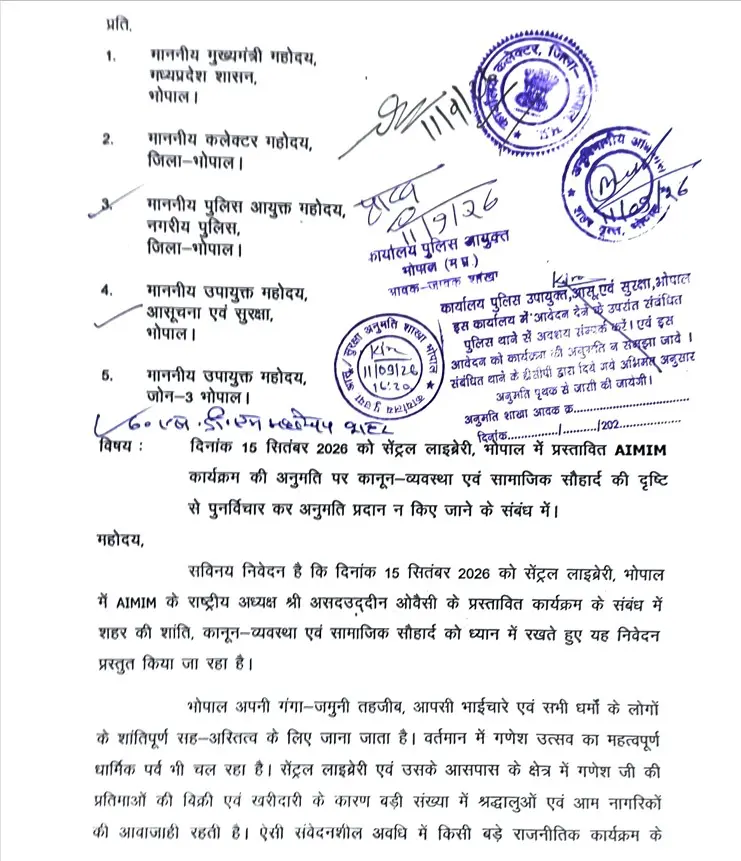 प्रति,
1. माननीय मुख्यमंत्री महोदय,
मध्यप्रदेश शासन,
भोपाल।
2. माननीय कलेक्टर महोदय,
जिला–भोपाल।
3. माननीय पुलिस आयुक्त महोदय,
नगरीय पुलिस,
जिला–भोपाल।
4. माननीय उपायुक्त महोदय,
आसूचना एवं सुरक्षा,
भोपाल।
5. माननीय उपायुक्त महोदय,
जोन–3 भोपाल।
कार्यालय कलेक्टर, जिला–
11/9/26
11/09/26
11/9/26
कार्यालय पुलिस आयुक्त
भोपाल (म.प्र.)
आवक–जावक शाखा
सुरक्षा अनुमति शाखा भोपाल
Kir
11/09/26
16:20
कार्यालय पुलिस उपायुक्त, आसू. एवं सुरक्षा, भोपाल
इस कार्यालय में आवेदन देने के उपरांत संबंधित
पुलिस थाने से अवश्य सम्पर्क करें। एवं इस
आवेदन को कार्यक्रम की अनुमति न समझा जाये।
संबंधित थाने के डीसीपी द्वारा दिये गये अभिमत अनुसार
अनुमति पृथक से जारी की जायेगी।
अनुमति शाखा आवक क्र.....................
दिनांक............/............/202...............
विषय : दिनांक 15 सितंबर 2026 को सेंट्रल लाइब्रेरी, भोपाल में प्रस्तावित AIMIM
कार्यक्रम की अनुमति पर कानून–व्यवस्था एवं सामाजिक सौहार्द की दृष्टि
से पुनर्विचार कर अनुमति प्रदान न किए जाने के संबंध में।
महोदय,
सविनय निवेदन है कि दिनांक 15 सितंबर 2026 को सेंट्रल लाइब्रेरी, भोपाल
में AIMIM के राष्ट्रीय अध्यक्ष श्री असदउद्दीन ओवैसी के प्रस्तावित कार्यक्रम के संबंध में
शहर की शांति, कानून–व्यवस्था एवं सामाजिक सौहार्द को ध्यान में रखते हुए यह निवेदन
प्रस्तुत किया जा रहा है।
भोपाल अपनी गंगा–जमुनी तहजीब, आपसी भाईचारे एवं सभी धर्मों के लोगों
के शांतिपूर्ण सह–अस्तित्व के लिए जाना जाता है। वर्तमान में गणेश उत्सव का महत्वपूर्ण
धार्मिक पर्व भी चल रहा है। सेंट्रल लाइब्रेरी एवं उसके आसपास के क्षेत्र में गणेश जी की
प्रतिमाओं की बिक्री एवं खरीदारी के कारण बड़ी संख्या में श्रद्धालुओं एवं आम नागरिकों
की आवाजाही रहती है। ऐसी संवेदनशील अवधि में किसी बड़े राजनीतिक कार्यक्रम के